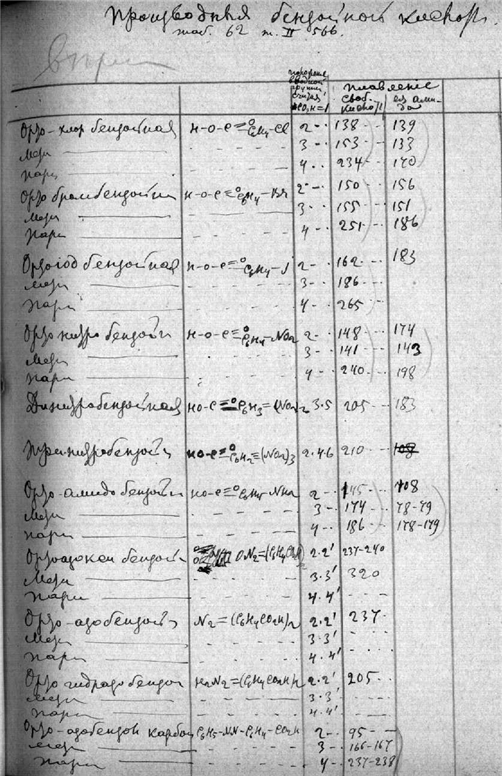 Производныя бензойной кислоты
таб. 62 т. II 566.
плавление
своб. кислоты
её амида
СО₂Н=1
Орто-хлор бензойная H-O-C≡O C₆H₄-Cl 2 - 138 - - 139
Мета 3 - 153 - - 133
Пара 4 - - 234 - - 170
Орто бромбензойн H-O-C≡O C₆H₄-Br 2 - 150 - - 156
Мета 3 - 155 - - 151
Пара 4 - 251 - - 186
Орто іод бензойная H-O-C≡O C₆H₄-J 2 - - 162 - - - 183
Мета 3 - - 186 - -
Пара 4 - - 265 - -
Орто нитро бензойн H-O-C≡O C₆H₄-NO₂ 2 - - 148 - - 174
Мета 3 - - 141 - - 143
Пара 4 - - 240 - - 198
Динитробензойная HO-C≡O C₆H₃=(NO₂)₂ 3.5 205 - - 183
Тринитробензой HO-C≡O C₆H₂≡(NO₂)₃ 2.46 210 - - - 108
Орто-амидо бензойн HO-C≡O C₆H₄-NH₂ 2 - - 145 - - 108
Мета 3 - 174 - - 78-79
Пара 4 - - 186 - - 178-179
Ортоазокси бензой ON₂=(C₆H₄CO₂H)₂ 2.2' 237-240
Мета 3.3' 320
Пара 4.4'
Орто-азобензой N₂=(C₆H₄CO₂H)₂ 2.2' 237 - -
Мета 3.3'
Пара 4.4'
Орто гидразо бензой H₂N₂=(C₆H₄CO₂H)₂ 2.2' 205 - - -
Мета 3.3'
Пара 4.4'
Орто-азобензол карбон C₆H₅-N₂N-C₆H₄-CO₂H 2 - - 95 - -
Мета 3 - 166-167
Пара 4 - 237-238